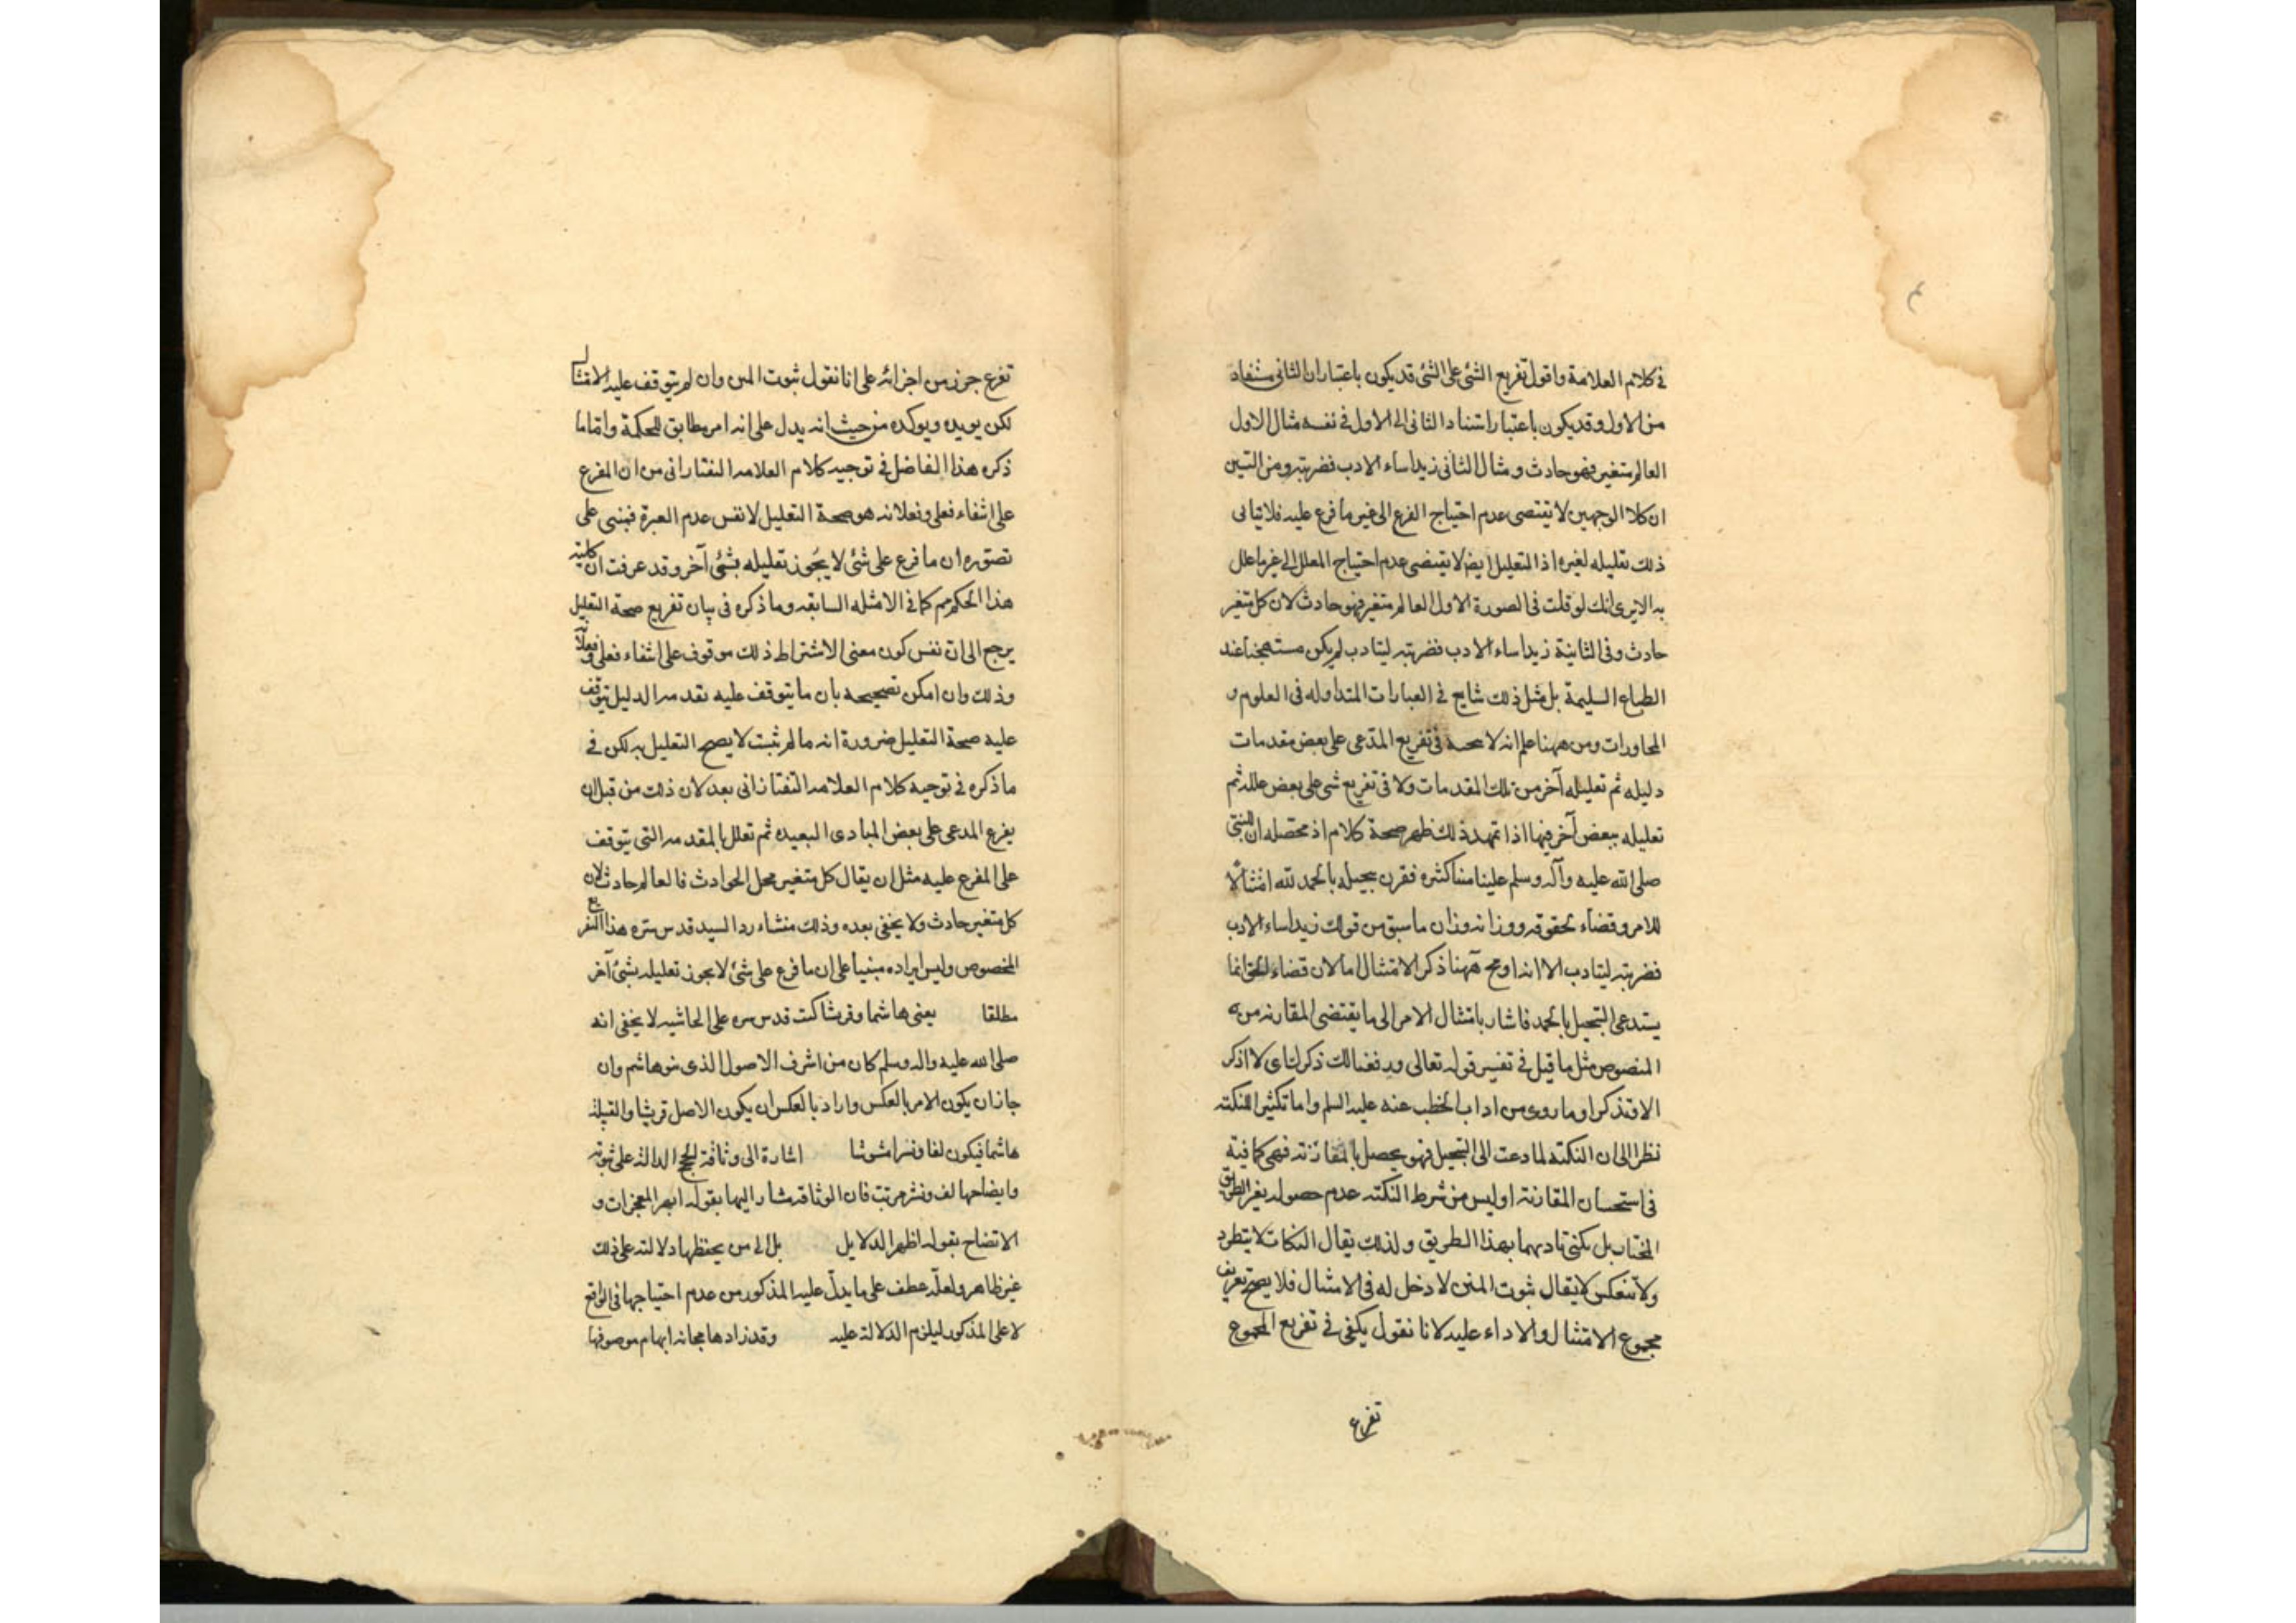 في كلام العلامة واقول تفريع الشئ على الشئ قد يكون باعتبار ان الثانى مستفاد
من الاول وقد يكون باعتبار استناد الثانى الى الاول في نفسه مثال الاول
العالم متغير فهو حادث ومثال الثانى زيد اساء الادب فضربته ومن التبين
ان كلا الوجهين لا يقتصى عدم احتياج الفرع الى غير ما فرع عليه فلا ينافى
ذلك تعليله لغيره اذ التعليل ايض لا يقتضى عدم احتياج المعلل الى غير ما علل
به الا يرى انك لو قلت فى الصورة الاول العالم متغير فهو حادث لان كل متغير
حادث وفى الثانية زيد اساء الادب فضربته ليتادب لم يكن مستهجنا عند
الطباع السليمة بل مثل ذلك شايع في العبارات المتداوله فى العلوم و
المحاورات ومن ههنا علم انه لا في تفريع المدعى على بعض مقدمات
دليله ثم تعليله آخر من تلك المقدمات ولا فى تفريع شى على بعض علله ثم
تعليله ببعض آخر فيها اذا تمهد ذلك ظهر صحة كلام اذ محصله ان النبى
صلى الله عليه وآله وسلم علينا مننا كثره فقرن تبجيله بالحمد لله امتثالا
للامر وقضاء لحقوقه ووزانه وزان ما سبق من قولك زيد اساء الادب
فضربته ليتادب الا انه ههنا ذكر الامتثال لان قضاء الحق انما
يستدعى التبجيل بالحمد فاشار بامتثال الامر الى ما يقتضى المقارنه من
المنصوص مثل ما قيل في تفسير قوله تعالى ورفعنا لك ذكرك اى لا اذكر
الا وتذكر او ما روى من اداب الخطب عنه عليه السلم واما تكثير النكته
نظرا الى ان النكته لما دعت الى التبجيل فهو يحصل بالمقارنة فهى كافية
فى استحسان المقارنة اوليس من شرط النكته عدم حصوله بغير الطريق
المختار بل يكفى تاديهما بهذا الطريق ولذلك يقال النكات لا يتطرد
ولا تنعكس لا يقال ثبوت المنن لا دخل له فى الامتثال فلا يصح تفريع
مجموع الامتثال والاداء عليه لانا نقول يكفى في تفريع المجموع
تفرع
تفرع جزء من اجزائه على انا نقول ثبوت المنن وان لم يتوقف عليه الامتثال
لكن يويده ويوكده من حيث انه يدل على انه امر مطابق للحكمة واما ما
ذكره هذا الفاضل في توجيه كلام العلامه التفتازانى من ان المفرع
على انتفاء فعلى وفعلانه هو صحة التعليل لا نفس عدم العبرة فمبنى على
تصوره ان ما فرع على شئ لا يجوز تعليله بشئ آخر وقد عرفت ان كلية
هذا الحكم مم كما فى الامثله السابقه وما ذكره فى بيان تفريع صحة التعليل
يرجع الى ان نفس كون معنى الاشتراط ذلك موقوف على انتفاء فعلى وفعلانه
وذلك وان امكن تصحيحه بان ما يتوقف عليه مقدمه الدليل يتوقف
عليه صحة التعليل ضرورة انه ما لم تثبت لا يصح التعليل به لكن في
ما ذكره في توجيه كلام العلامه التفتازانى بعد لان ذلك من قبل ان
يفرع المدعى على بعض المبادى البعيده ثم تعلل بالمقدمه التى يتوقف
على المفرع عليه مثل ان يقال كل متغير محل الحوادث فالعالم حادث لان
كل متغير حادث ولا يخفى بعده وذلك منشاء رد السيد قدس سره هذا التفريع
المخصوص وليس ايراده مبنيا على ان ما فرع على شئ لا يجوز تعليله بشئ آخر
مطلقا يعنى هاشما وقريشا كتب قدس سره على الحاشيه لا يخفى انه
صلى الله عليه واله وسلم كان من اشرف الاصول الذى بنو هاشم وان
جاز ان يكون الامر بالعكس واراد بالعكس ان يكون الاصل قريشا والقبيلة
هاشما فيكون لفا ونشرا مشوشا اشارة الى وثاقة الحجج الدالة على نبوته
وايضاحها لف ونشر مرتب فان الوثاقة مشار اليها بقوله ابهر المعجزات و
الاتضاح بقوله اظهر الدلايل بل الى من يحفظها دلالته على ذلك
غير ظاهر ولعله عطف على ما يدل عليه المذكور من عدم احتياجها فى الواقع
لا على المذكور ليلزم الدلالة عليه وقد زادها مجانه ابهام موصوفها